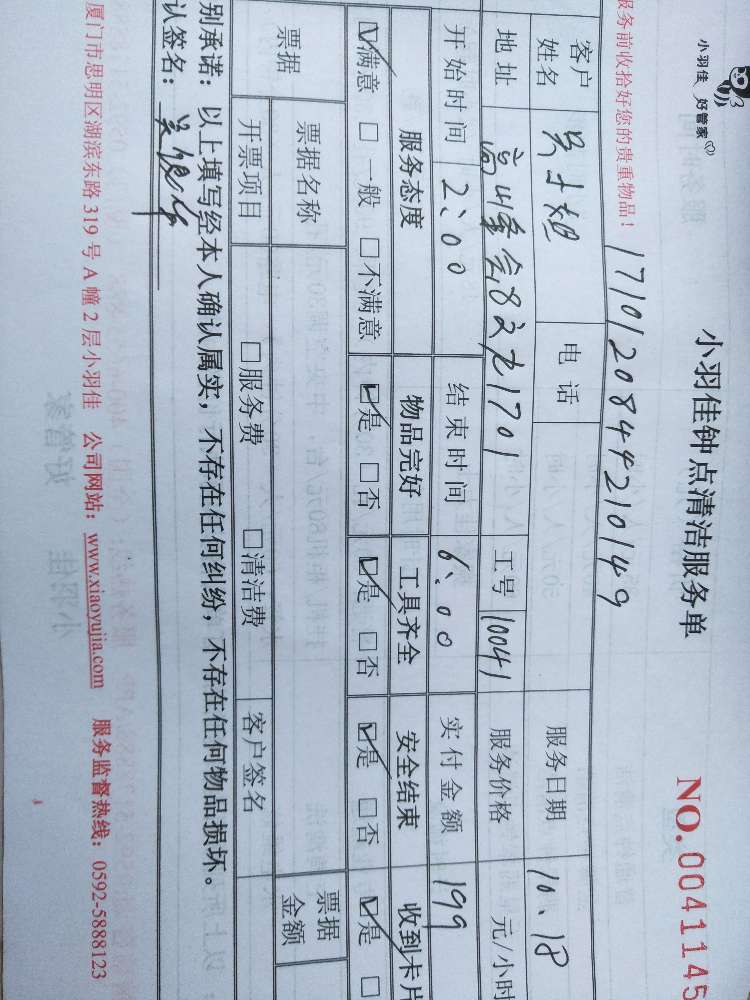 小羽佳 好管家
小羽佳钟点清洁服务单
NO.0041145
服务前收拾好您的贵重物品！
1710120844210149
客户姓名 吴小姐 电话 服务日期 10.18
地址 8之1701 工号 10041 服务价格 元/小时
开始时间 2:00 结束时间 6:00 实付金额 199
服务态度 物品完好 工具齐全 安全结束 收到卡片
☑满意 □一般 □不满意 ☑是 □否 ☑是 □否 ☑是 □否 ☑是 □
票据 票据名称 票据金额
开票项目 □服务费 □清洁费 客户签名
别承诺：以上填写经本人确认属实，不存在任何纠纷，不存在任何物品损坏。
认签名：
厦门市思明区湖滨东路 319 号 A 幢 2 层小羽佳 公司网站：www.xiaoyujia.com 服务监督热线：0592-5888123